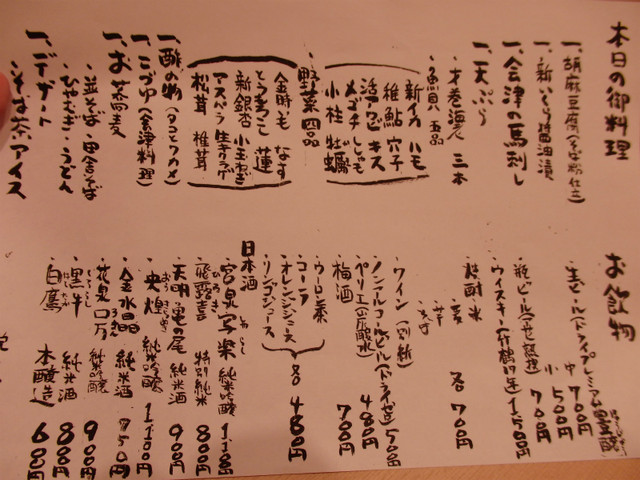 本日の御料理
一、胡麻豆腐(そば粉仕立)
一、新いくら醤油漬
一、会津の馬刺し
一、天ぷら
・才巻海老 三本
・魚貝 五品
新イカ ハモ
稚鮎 穴子
活アワビ キス
メゴチ
小柱 牡蠣
・野菜 四品
金時いも なす
蓮
新銀杏 小玉ねぎ
アスパラ 生キクラゲ
松茸 椎茸
一、酢の物(タコとワカメ)
一、こづゆ(会津料理)
一、お蕎麦
・並そば・田舎そば
・ひやむぎ・うどん
一、デザート
・そば茶アイス
お飲物
・生ビール(ドライプレミアム豊醸)
中 700円
小 550円
・瓶ビール 700円
・ウイスキー(竹鶴17年) 1,500円
・焼酎 米
・麦
・芋
各700円
・ワイン(別紙)
・ノンアルコールビール(ドライゼロ) 500円
・ペリエ(炭酸水) 480円
・梅酒 700円
・ウーロン茶
・コーラ
・オレンジジュース
・リンゴジュース
各480円
日本酒
・宮泉 写楽 純米吟醸 1,100円
・飛露喜 特別純米 800円
・天明 亀の尾 純米酒 900円
・央 煌 純米吟醸 1,100円
・金水晶 純米酒 750円
・花泉 口万 純米吟醸 900円
・黒牛 純米酒 800円
・白鷹 本醸造 600円